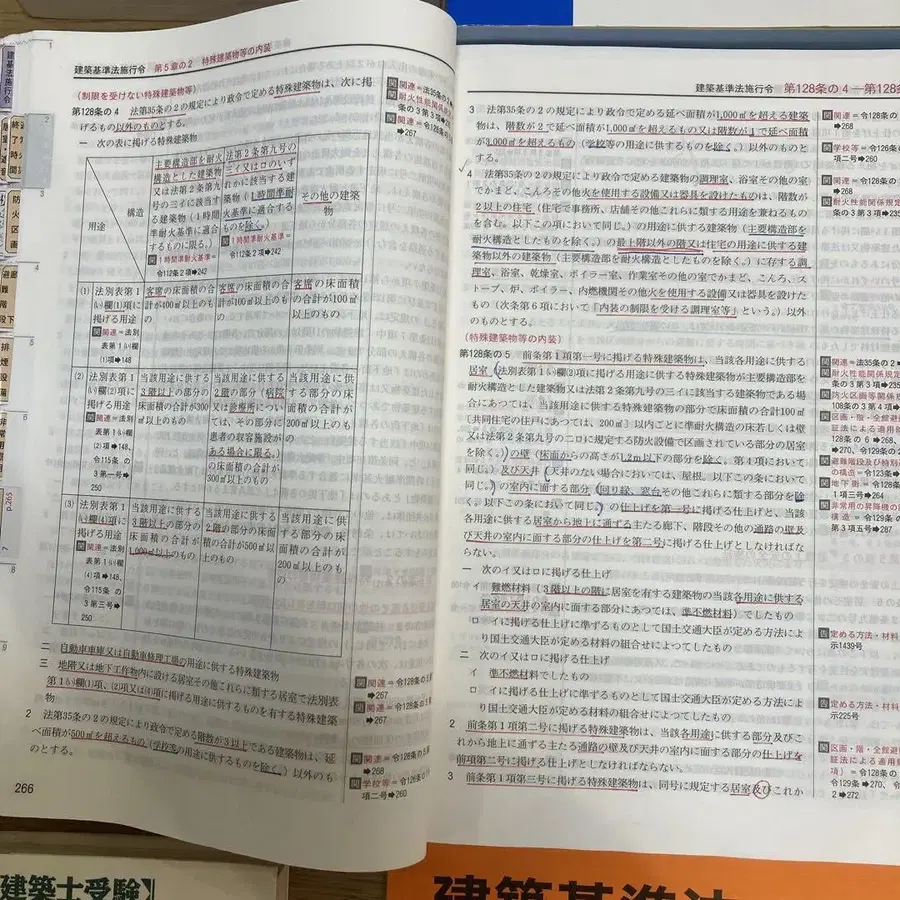 建築基準法施行令 第5章の2 特殊建築物等の内装
(制限を受けない特殊建築物等)
第128条の4 法第35条の2の規定により政令で定める特殊建築物は、次に掲
げるもの以外のものとする。
一 次の表に掲げる特殊建築物
構造
用途
主要構造部を耐火
構造とした建築物
又は法第2条第九
号の三イに該当す
る建築物(1時間
準耐火基準に適合
するものに限る。)
関 1時間準耐火基準=
令112条2項➡242
法第2条第九号の
三イ又はロのいず
れかに該当する建
築物(1時間準耐
火基準に適合する
ものを除く。)
関 1時間準耐火基準=
令112条2項➡242
その他の建築
物
(1) 法別表第1
(い)欄(1)項に
掲げる用途
関 関連=法別
表第1(い)欄
(1)項➡148
客席の床面積の合
計が400㎡以上のも
の
客席の床面積の合
計が100㎡以上のもの
客席の床面積
の合計が100㎡
以上のもの
(2) 法別表第1
(い)欄(2)項に
掲げる用途
関 関連=法別
表第1(い)欄
(2)項➡148、
令115条の
3第一号➡
250
当該用途に供する
3階以上の部分の
床面積の合計が300
㎡以上のもの
当該用途に供する
2階の部分(病院
又は診療所につい
ては、その部分に
患者の収容施設が
ある場合に限る。)
の床面積の合計が
300㎡以上のもの
当該用途に供
する部分の床
面積の合計が
200㎡以上のも
の
(3) 法別表第1
(い)欄(4)項に
掲げる用途
関 関連=法別
表第1(い)欄
(4)項➡148、
令115条の
3第三号➡
250
当該用途に供する
3階以上の部分の
床面積の合計が
1,000㎡以上のもの
当該用途に供する
2階の部分の床面
積の合計が500㎡以
上のもの
当該用途に供
する部分の床
面積の合計が
200㎡以上のも
の
二 自動車車庫又は自動車修理工場の用途に供する特殊建築物
三 地階又は地下工作物内に設ける居室その他これらに類する居室で法別表
第1(い)欄(1)項、(2)項又は(4)項に掲げる用途に供するものを有する特殊建築
物
2 法第35条の2の規定により政令で定める階数が3以上である建築物は、延
べ面積が500㎡を超えるもの(学校等の用途に供するものを除く。)以外のも
のとする。
266
建築基準法施行令 第128条の4―第128条
3 法第35条の2の規定により政令で定める延べ面積が1,000㎡を超える建築
物は、階数が2で延べ面積が1,000㎡を超えるもの又は階数が1で延べ面積
が3,000㎡を超えるもの(学校等の用途に供するものを除く。)以外のものと
する。
4 法第35条の2の規定により政令で定める建築物の調理室、浴室その他の室
でかまど、こんろその他火を使用する設備又は器具を設けたものは、階数が
2以上の住宅(住宅で事務所、店舗その他これらに類する用途を兼ねるもの
を含む。以下この項において同じ。)の用途に供する建築物(主要構造部を
耐火構造としたものを除く。)の最上階以外の階又は住宅の用途に供する建
築物以外の建築物(主要構造部を耐火構造としたものを除く。)に存する調
理室、浴室、乾燥室、ボイラー室、作業室その他の室でかまど、こんろ、ス
トーブ、炉、ボイラー、内燃機関その他火を使用する設備又は器具を設けた
もの(次条第6項において「内装の制限を受ける調理室等」という。)以外
のものとする。
(特殊建築物等の内装)
第128条の5 前条第1項第一号に掲げる特殊建築物は、当該各用途に供する
居室(法別表第1(い)欄(2)項に掲げる用途に供する特殊建築物が主要構造部を
耐火構造とした建築物又は法第2条第九号の三イに該当する建築物である場
合にあつては、当該用途に供する特殊建築物の部分で床面積の合計100㎡
〔共同住宅の住戸にあつては、200㎡〕以内ごとに準耐火構造の床若しくは壁
又は法第2条第九号の二ロに規定する防火設備で区画されている部分の居室
を除く。)の壁(床面からの高さが1.2m以下の部分を除く。第4項において
同じ。)及び天井(天井のない場合においては、屋根。以下この条において
同じ。)の室内に面する部分(回り縁、窓台その他これらに類する部分を除
く。以下この条において同じ。)の仕上げを第一号に掲げる仕上げと、当該
各用途に供する居室から地上に通ずる主たる廊下、階段その他の通路の壁及
び天井の室内に面する部分の仕上げを第二号に掲げる仕上げとしなければな
らない。
一 次のイ又はロに掲げる仕上げ
イ 難燃材料(3階以上の階に居室を有する建築物の当該各用途に供する
居室の天井の室内に面する部分にあつては、準不燃材料)でしたもの
ロ イに掲げる仕上げに準ずるものとして国土交通大臣が定める方法によ
り国土交通大臣が定める材料の組合せによつてしたもの
二 次のイ又はロに掲げる仕上げ
イ 準不燃材料でしたもの
ロ イに掲げる仕上げに準ずるものとして国土交通大臣が定める方法によ
り国土交通大臣が定める材料の組合せによつてしたもの
2 前条第1項第二号に掲げる特殊建築物は、当該各用途に供する部分及びこ
れから地上に通ずる主たる通路の壁及び天井の室内に面する部分の仕上げを
前項第二号に掲げる仕上げとしなければならない。
3 前条第1項第三号に掲げる特殊建築物は、同号に規定する居室及びこれか
建築士受験】